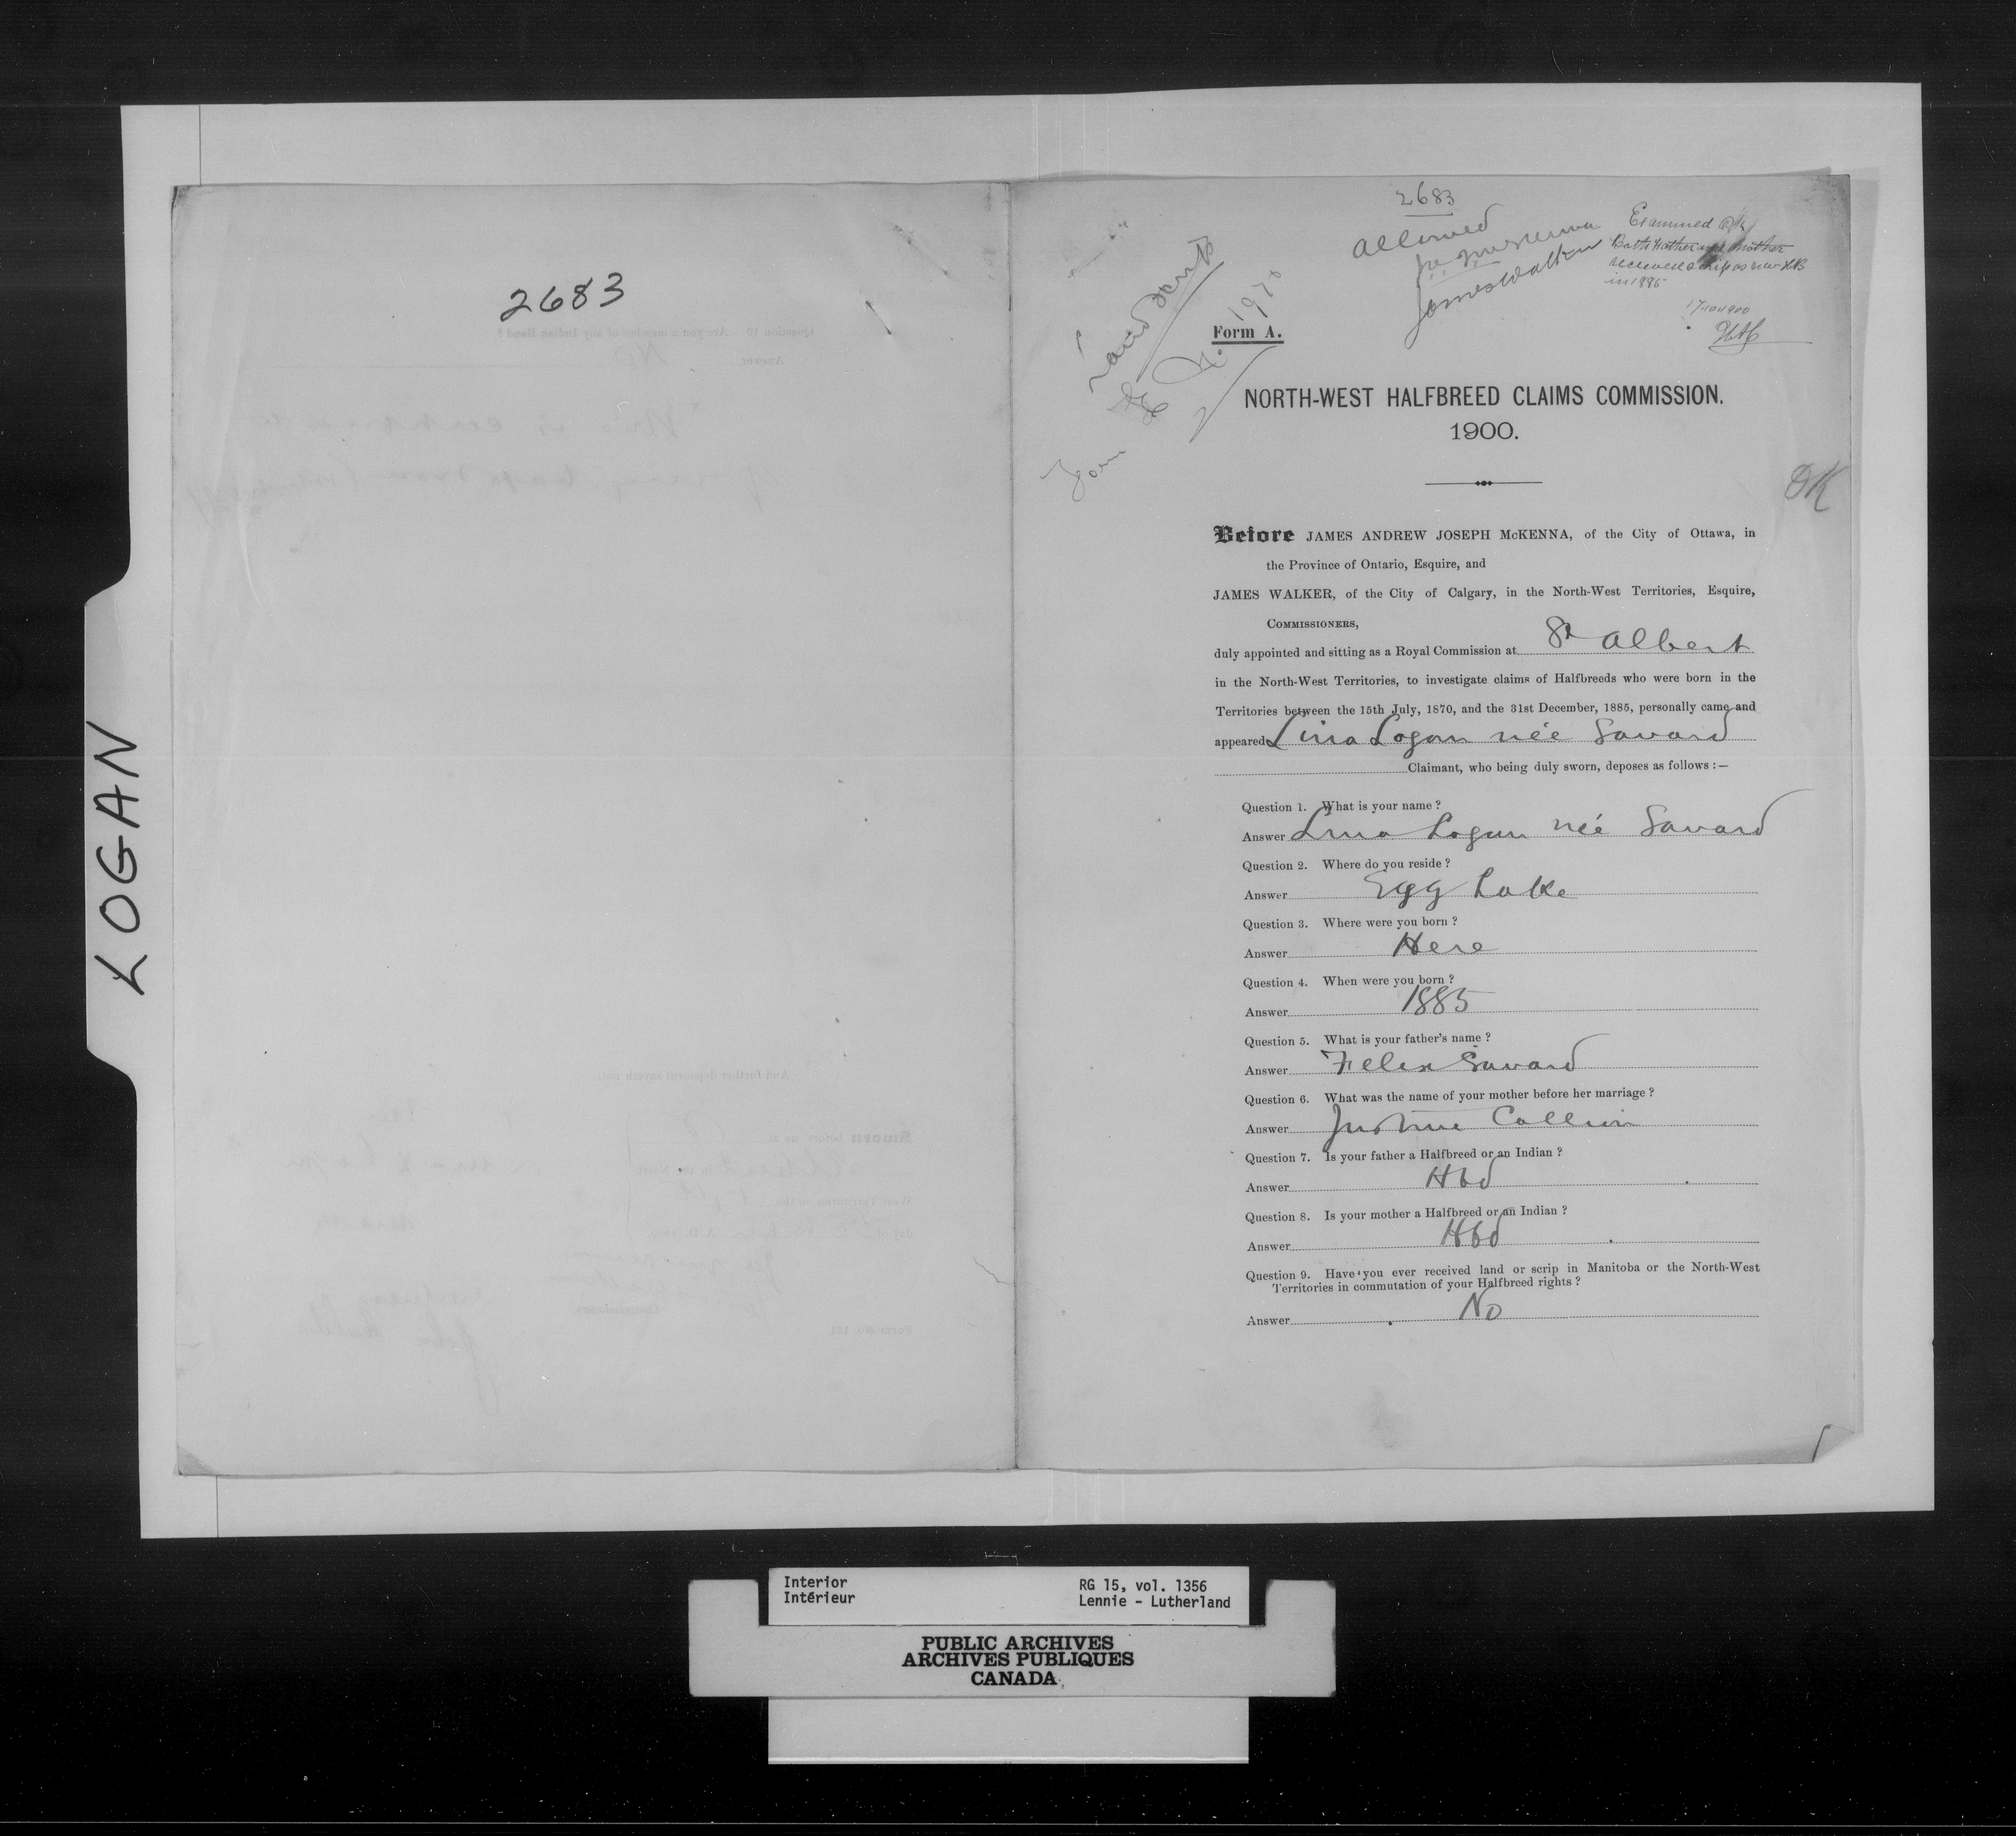 LOGAN
2683
2683
Allowed
James Walker
Examined
Both Father and Mother
received scrip as
in 1885
Land Scrip
Form
OK
Form A.
NORTH-WEST HALFBREED CLAIMS COMMISSION.
1900.
Before JAMES ANDREW JOSEPH McKENNA, of the City of Ottawa, in
the Province of Ontario, Esquire, and
JAMES WALKER, of the City of Calgary, in the North-West Territories, Esquire,
COMMISSIONERS,
duly appointed and sitting as a Royal Commission at St Albert
in the North-West Territories, to investigate claims of Halfbreeds who were born in the
Territories between the 15th July, 1870, and the 31st December, 1885, personally came and
appeared Lina Logan née Savard
Claimant, who being duly sworn, deposes as follows :—
Question 1. What is your name ?
Answer Lina Logan née Savard
Question 2. Where do you reside ?
Answer Egg Lake
Question 3. Where were you born ?
Answer Here
Question 4. When were you born ?
Answer 1885
Question 5. What is your father's name ?
Answer Felix Savard
Question 6. What was the name of your mother before her marriage ?
Answer Justine Callion
Question 7. Is your father a Halfbreed or an Indian ?
Answer Hbd
Question 8. Is your mother a Halfbreed or an Indian ?
Answer Hbd
Question 9. Have you ever received land or scrip in Manitoba or the North-West
Territories in commutation of your Halfbreed rights ?
Answer No
Interior
Intérieur
RG 15, vol. 1356
Lennie - Lutherland
PUBLIC ARCHIVES
ARCHIVES PUBLIQUES
CANADA